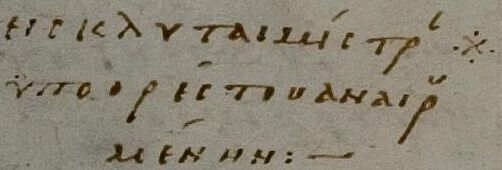 εις κλυταιμήστρ` ※
υπο ορέστου αναιρȣ
μένην:—